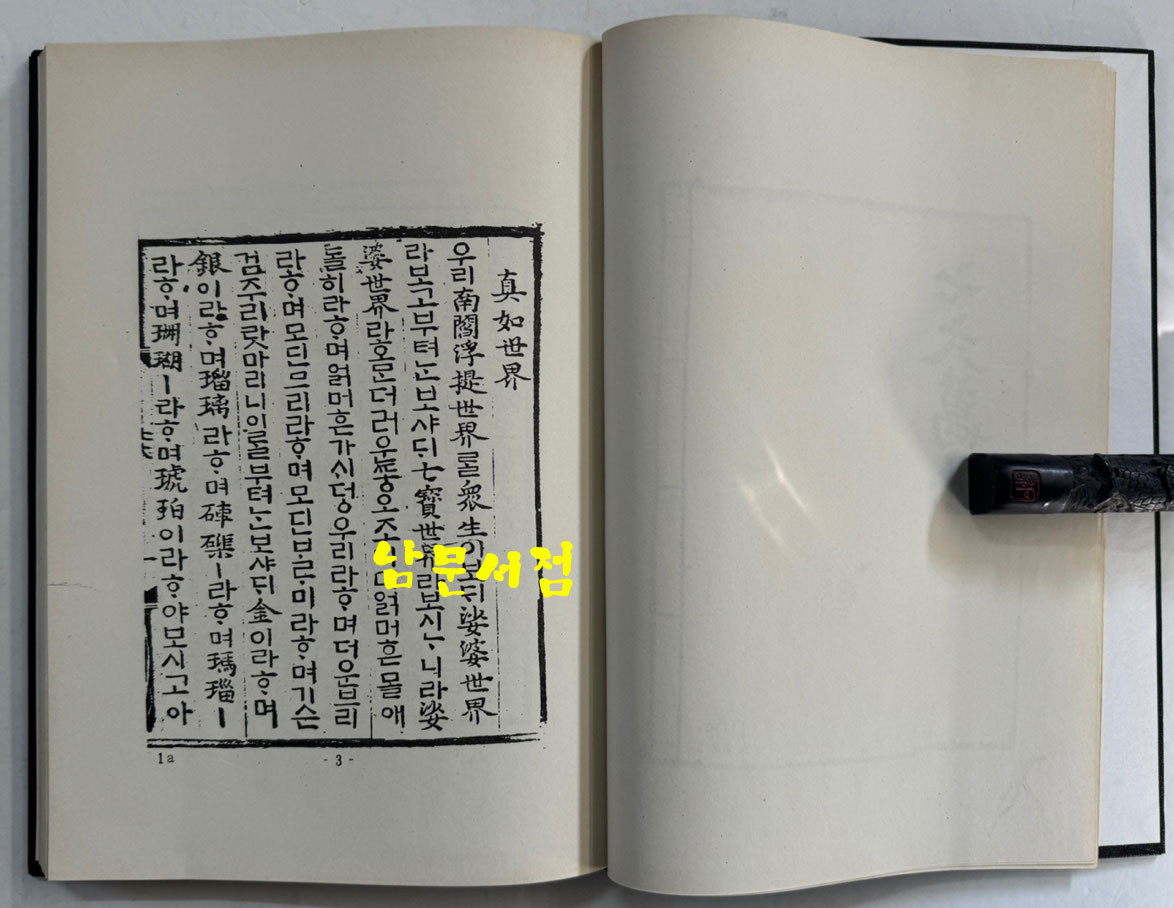 真如世界
우리南閻浮提世界ᄅᆞᆯ衆生이보ᄃᆡ娑婆世界
라보고부텨ᄂᆞᆫ보샤ᄃᆡ七寶世界라보시ᄂᆞ니라娑
婆世界라호ᄆᆞᆫ더러운ᄯᅩᆼ오조 얽머흔몰애
돌히라ᄒᆞ며얽머흔가ᄉᆡ덩우리라ᄒᆞ며더운브리
라ᄒᆞ며모딘므리라ᄒᆞ며모딘ᄇᆞᄅᆞ미라ᄒᆞ며기슨
검주리랏마리니이ᄅᆞᆯ부텨ᄂᆞᆫ보샤ᄃᆡ金이라ᄒᆞ며
銀이라ᄒᆞ며瑠璃라ᄒᆞ며硨磲ㅣ라ᄒᆞ며瑪瑙ㅣ
라ᄒᆞ며珊瑚ㅣ라ᄒᆞ며琥珀이라ᄒᆞ야보시고아
남문서점
1a
- 3 -